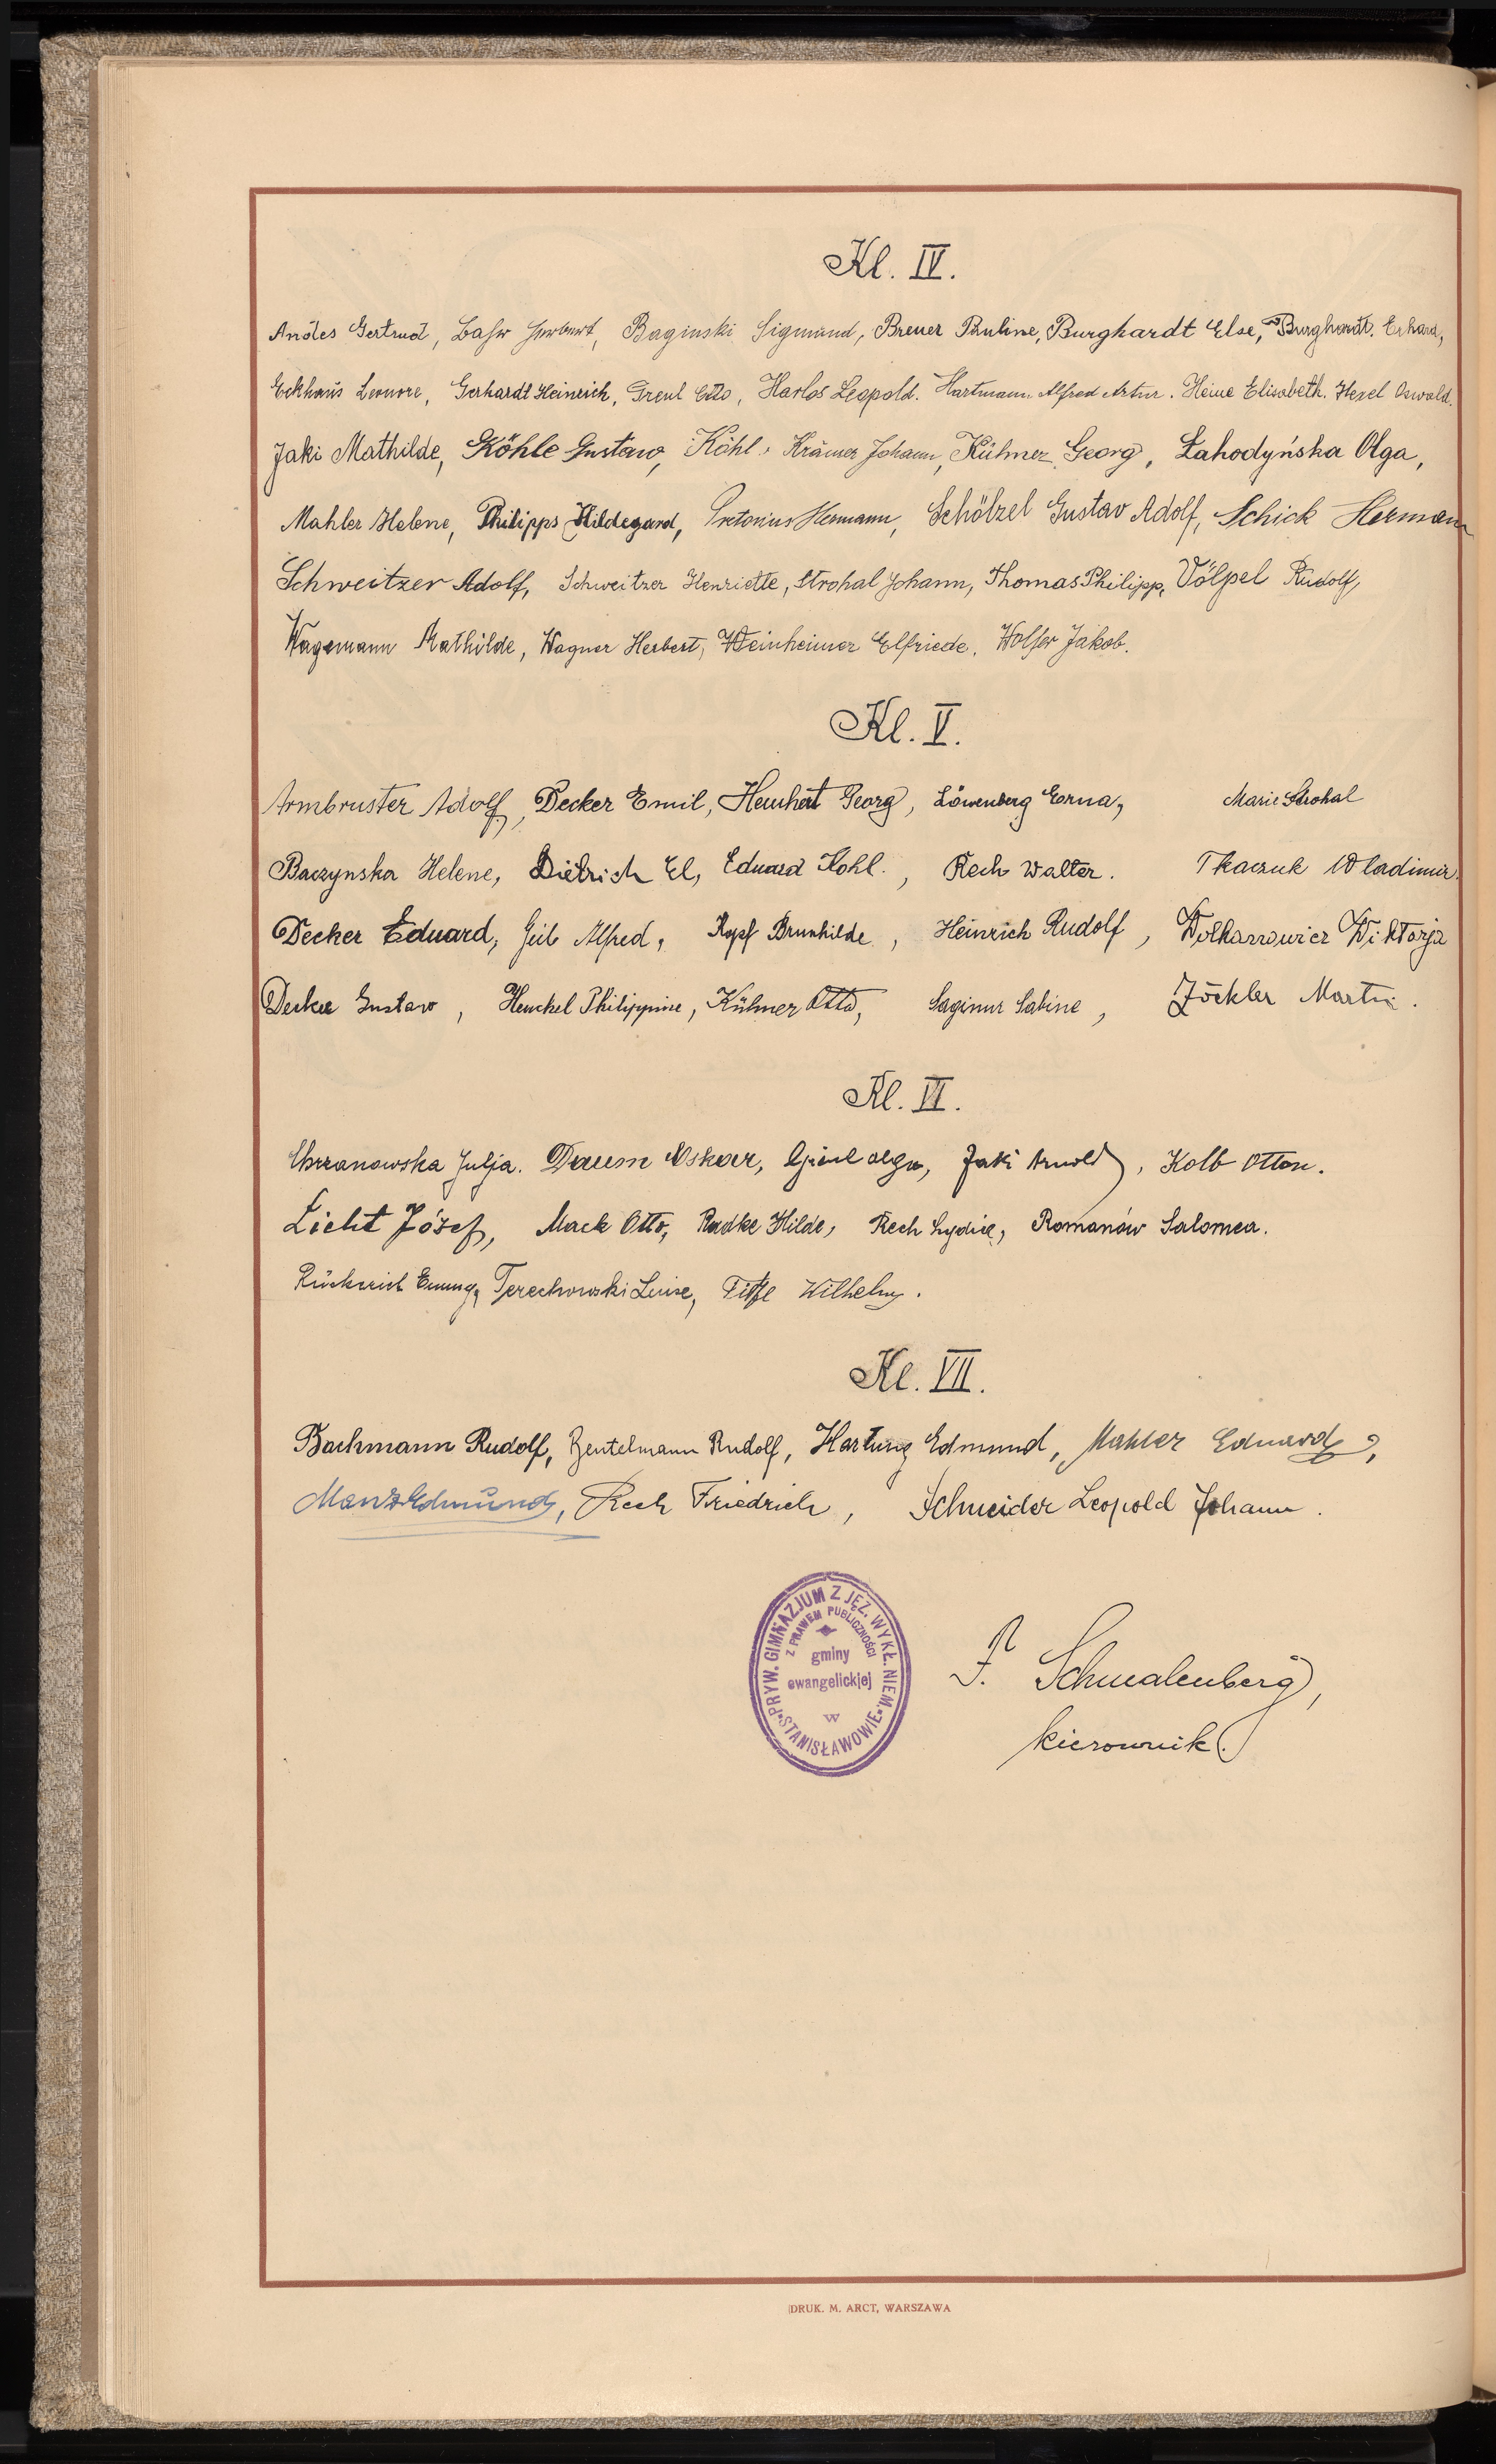 Kl. IV.
Andes Gertrud, Bahr Herbert, Baginski Sigmund, Breuer Pauline, Burghardt Else, Burghardt. Erhard,
Eckhaus Leonore, Gerhardt Heinrich, Greul Otto, Harlos Leopold. Hartmann Alfred Artur. Heine Elisabeth. Hexel Oswald.
Jaki Mathilde, Köhle Gustaw, Köhl, Krämer Johann, Kühner Georg, Łahodyńska Olga,
Mahler Helene, Philipps Hildegard, Pretorius Hermann, Schölzel Gustav Adolf, Schick Herman
Schweitzer Adolf, Schweitzer Henriette, Strohal Johann, Thomas Philipp, Völpel Rudolf,
Wagemann Mathilde, Wagner Herbert, Weinheimer Elfriede, Wolfer Jakob.
Kl. V.
Armbruster Adolf, Decker Emil, Georg, Löwenberg Erna, Marie Strohal
Baczynska Helene, Dietrich El, Eduard Kohl., Rech Walter. Tkaczuk Wladimir.
Decker Eduard, Geib Alfred, Kopf Brunhilde, Heinrich Rudolf, Wiktorja
Decker Gustaw, Henckel Philippine, Kühner Otto, Sabine, Zöckler Martin.
Kl. VI.
Chrzanowska Julja. Daum Oskar, Greul Olga, Jaki Arnold, Kolb Otton.
Licht Józef, Mack Otto, Radke Hilde, Rech Lydia, Romanów Salomea.
Terechowski Luise, Wilhelm.
Kl. VII.
Bachmann Rudolf, Gentelmann Rudolf, Hartung Edmund, Mahler Eduard,
Manz Edmund, Rech Friedrich, Schneider Leopold Johann.
PRYW. GIMNAZJUM Z JĘZ. WYKŁ. NIEM.
Z PRAWEM PUBLICZNOŚCI
gminy
ewangelickiej
w
STANISŁAWOWIE
F. Schmalenberg,
kierownik.
DRUK. M. ARCT, WARSZAWA